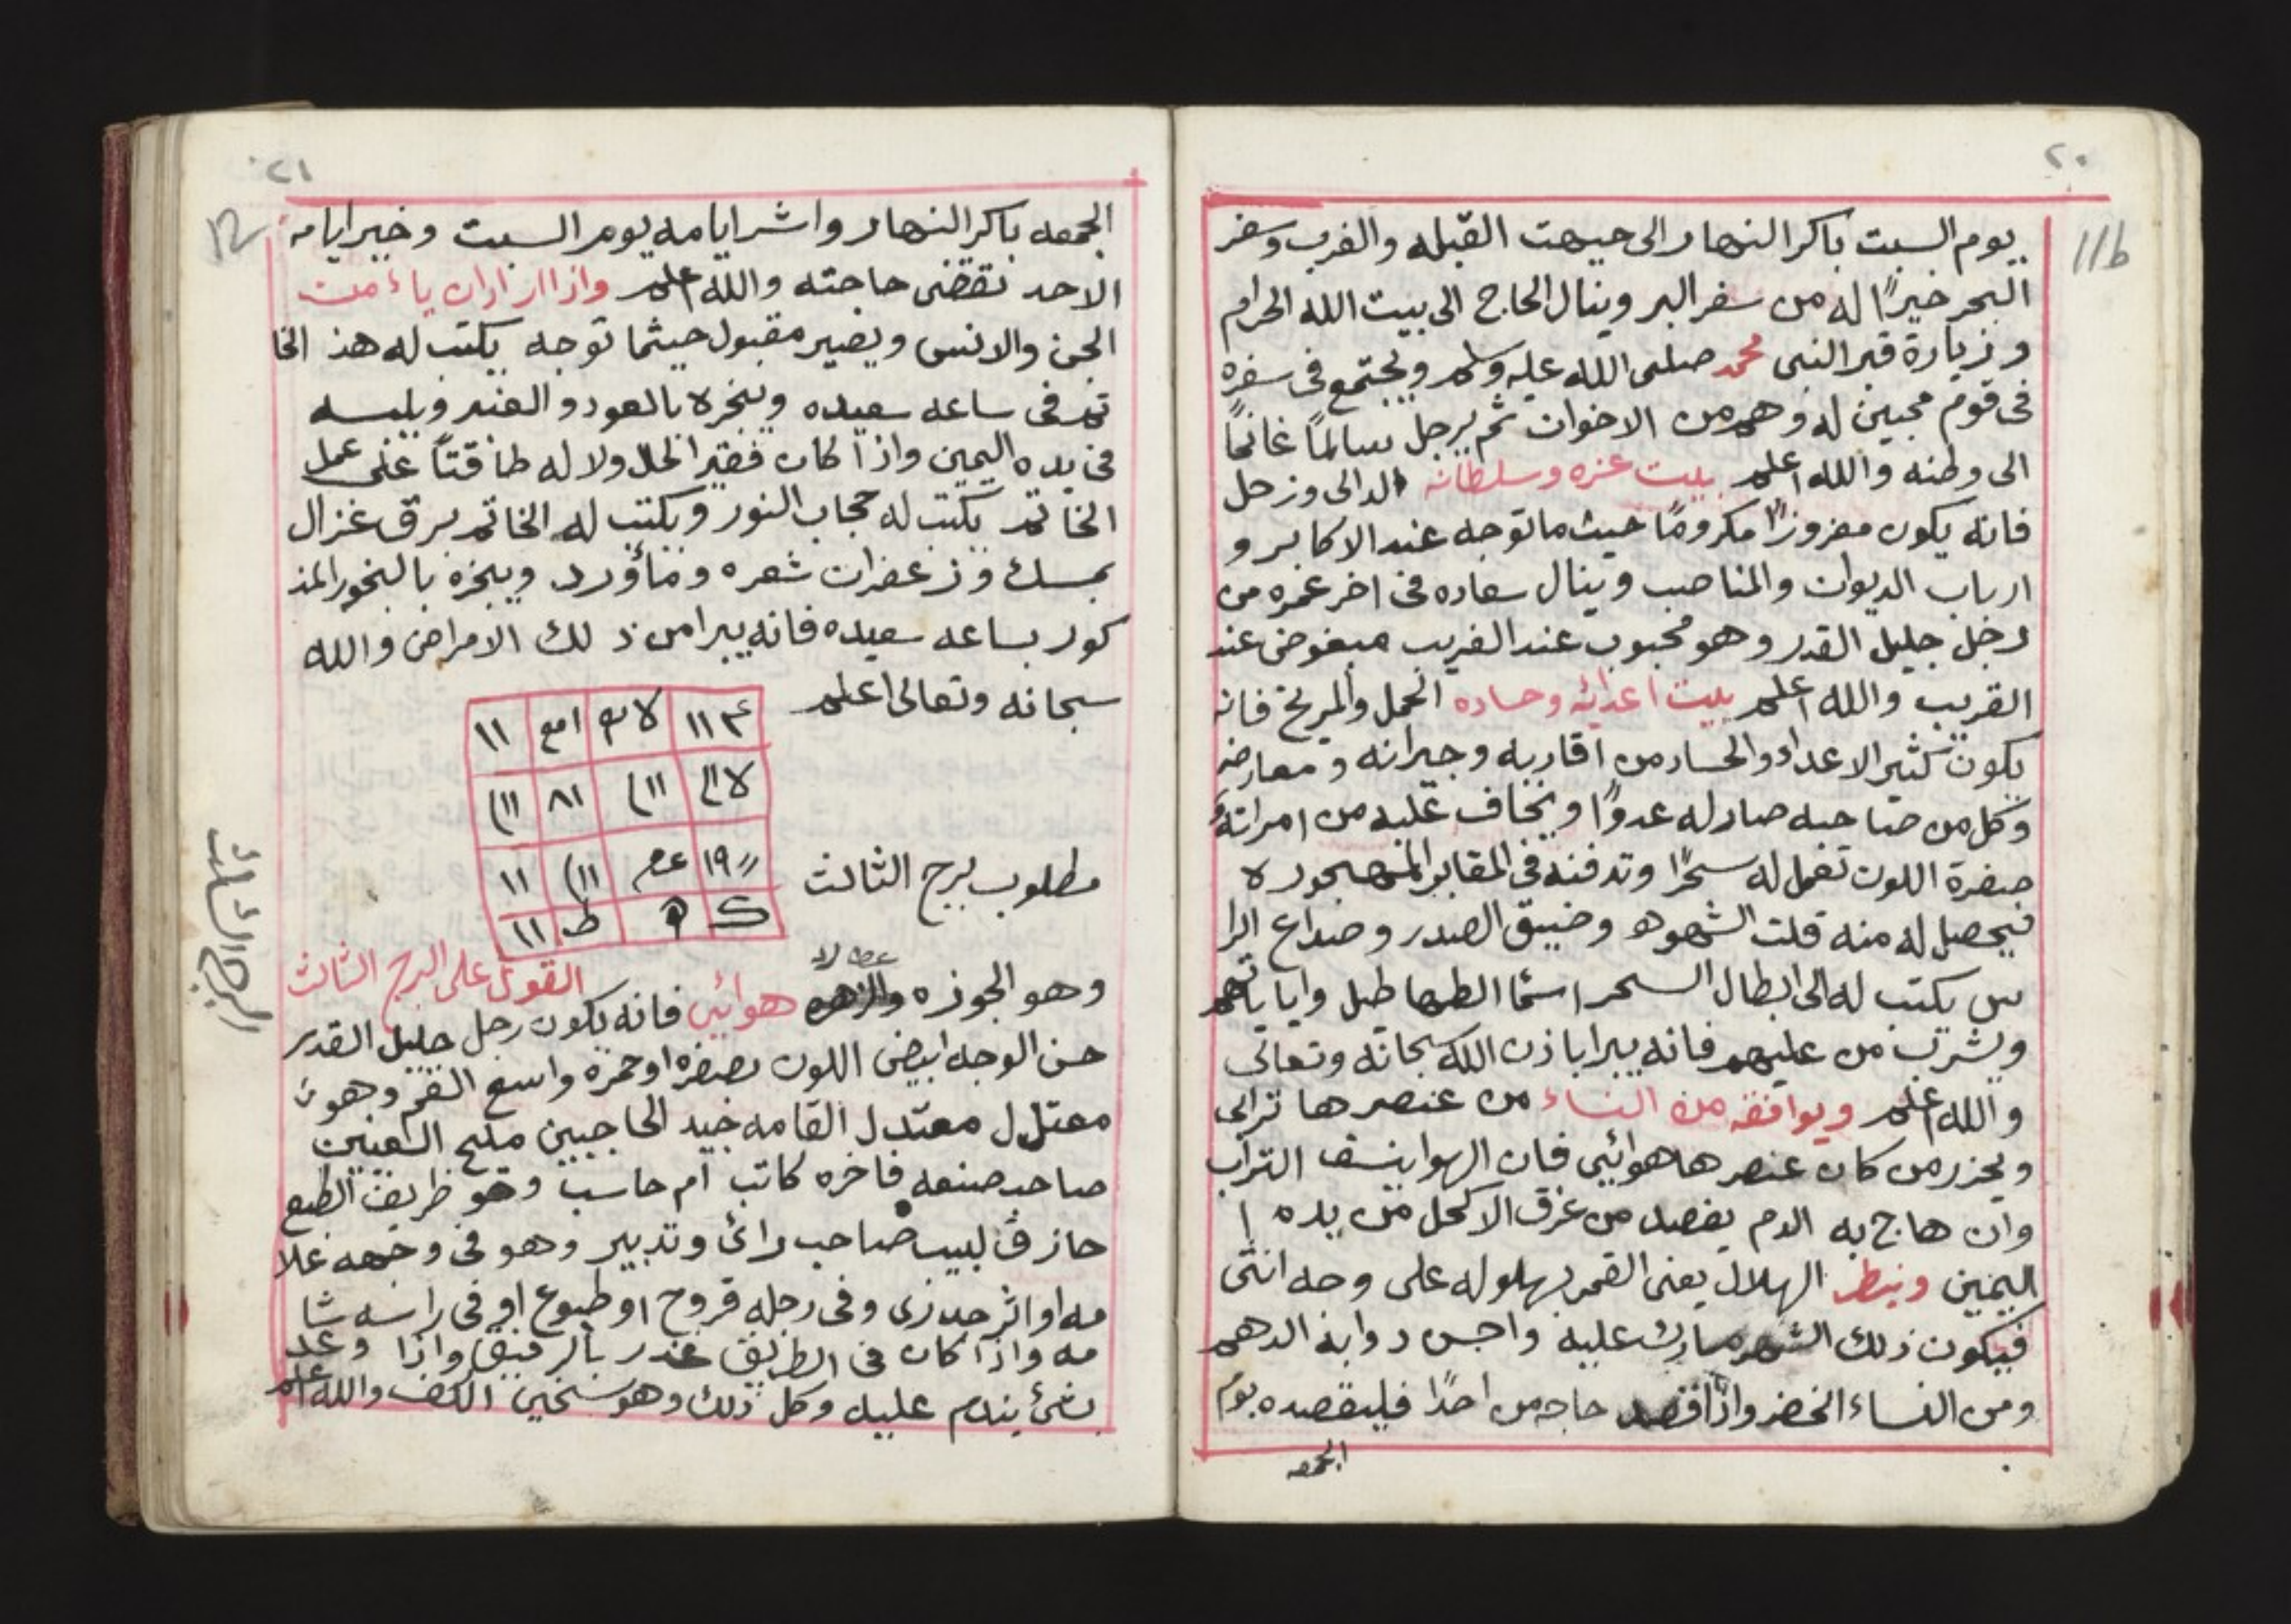 ٢٠
11b
يوم السبت باكر النهار الى جيهت القبله والغرب وسفر
البحر خيرًا له من سفر البر وينال الحاج الى بيت الله الحرام
وزيارة قبر النبى محمد صلى الله عليه وسلم ويجتمع فى سفره
فى قوم محبين له وهم من الاخوان ثم يرجل سالمًا غانمًا
الى وطنه والله اعلم بيت عزه وسلطانه الدالى وزحل
فانه يكون معزوزًا مكرومًا حيث ما توجه عند الاكابر و
ارباب الديوان والمناصب وينال سعاده فى اخر عمره من
رجل جليل القدر وهو محبوب عند الغريب مبغوض عند
القريب والله اعلم بيت اعدائه وحساده الحمل والمريخ فانه
يكون كثير الاعداء والحساد من اقاربه وجيرانه و معارضه
وكل من صاحبه صار له عدوًا ويخاف عليه من امراته
صفرة اللون تعمل له سحرًا وتدفنه فى المقابر المهجوره
فيحصل له منه قلت الشهوه وضيق الصدر وصداع الرا
س يكتب له الى ابطال السحر اسما الطهاطيل واياياتهم
ويشرب من عليهم فانه يبرا باذن الله سبحانه وتعالى
والله اعلم ويوافقه من النساء من عنصرها ترابى
ويحزر من كان عنصرها هوائى فان الهوا ينسف التراب
وان هاج به الدم يفصد من عرق الاكحل من يده ا
اليمين وينظر الهلال يعنى القمر بهلوله على وجه انثى
فيكون ذلك الشهر مبارك عليه واحسن دوابه الدهم
ومن النساء الخضر واذا قصد حاجه من احدًا فليقصده يوم
الجمعه
٢١
12
الجمعه باكر النهار واشر ايامه يوم السبت وخير ايامه
الاحد تقضى حاجته والله اعلم واذا اراد ان ياءمن
الجن والانس ويصير مقبول حيثما توجه يكتب له هذ الخا
تم فى ساعه سعيده ويبخره بالعود والعنبر ويلبسه
فى يده اليمين واذا كان فقير الحال ولا له طاقتًا على عمل
الخاتم يكتب له حجاب النور ويكتب له الخاتم برق غزال
بمسك وزعفران شعره وماؤرد ويبخره بالبخور المذ
كور بساعه سعيده فانه يبرا من ذلك الامراض والله
سبحانه وتعالى اعلم
١١
٨١
١١
١٩
مطلوب برج الثالث
القول على البرج الثالث
وهو الجوزه والزهره عطارد هوائى فانه يكون رجل جليل القدر
حسن الوجه ابيض اللون بصفره او حمره واسع الفم وهو
معتدل معتدل القامه جيد الحاجبين مليح العينين
صاحب صنعه فاخره كاتب ام حاسب وهو ظريف الطبع
حازق لبيب صاحب رائ وتدبير وهو فى وجهه علا
مه او اثر جدرى وفى رجله قروح او طبوع او فى راسه شا
مه واذا كان فى الطريق غدر بالرفيق واذا وعد
بشئ يندم عليه وكل ذلك وهو سخين الكف والله اعلم
البرج الثالث